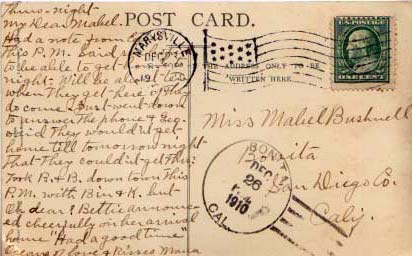 Thurs-night-
POST CARD.
My dear Mabel.
MARYSVILLE
Had a note from
DEC
this P.M. Said
THE ADDRESS ONLY TO BE
to be able to get
WRITTEN HERE.
night. Will be
ONE CENT
when they get here
do come. Just went down
to answer the phone & Geo
said They wouldn't get
home till tomorrow night
That they couldn't get the
Took R. & B. down town This
P.M. with Bin & K. but
Oh dear! Bettie announc-
ed cheerfully on her arrival
home "Had a good time"
Oceans of love & kisses Mama
Miss Mabel Bushnell
Bonita
San Diego Co.
Calif.
BONITA
DEC
26
1910
CAL.